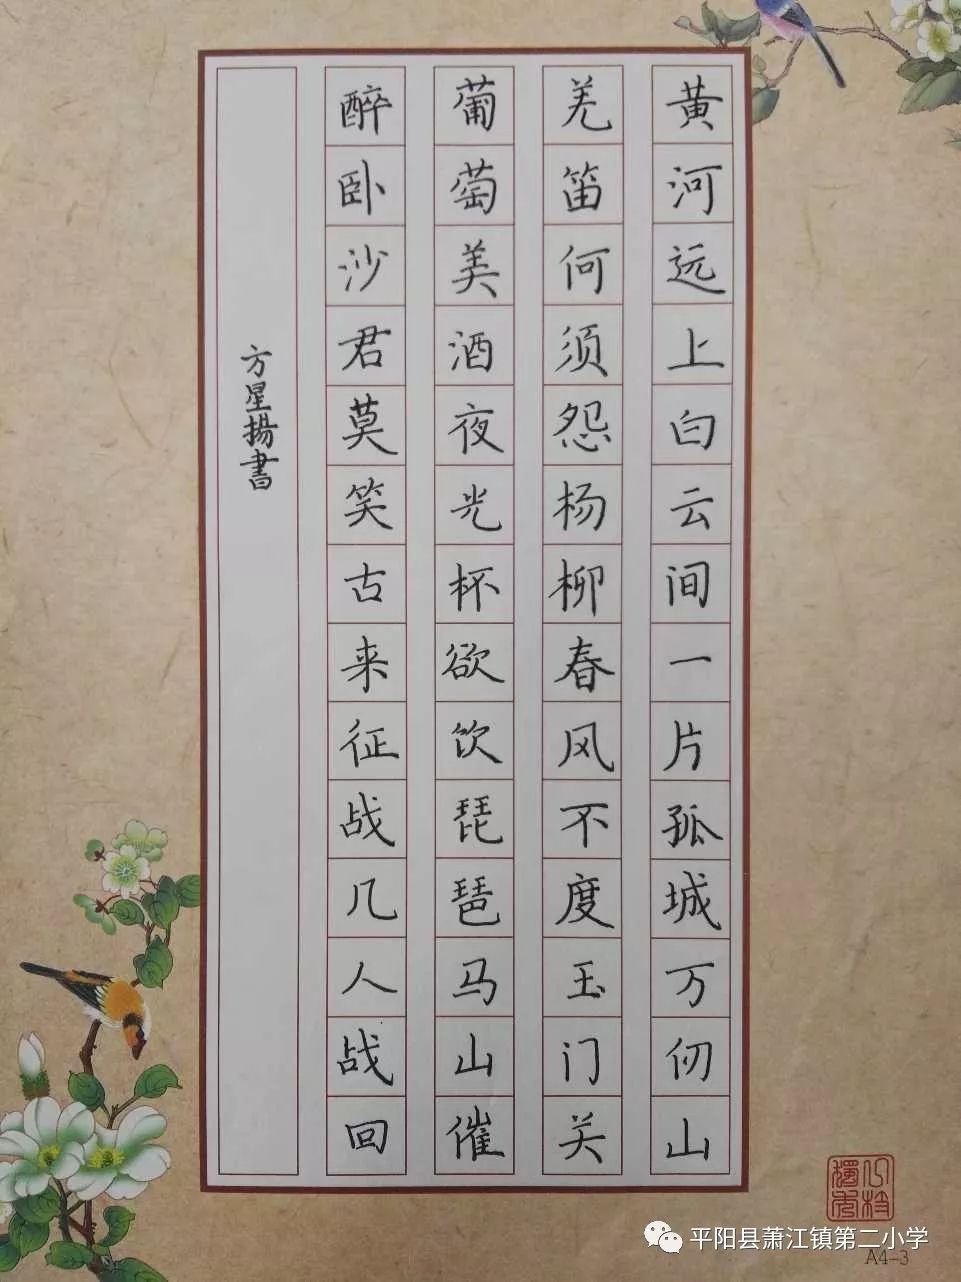 黄河远上白云间一片孤城万仞山
羌笛何须怨杨柳春风不度玉门关
葡萄美酒夜光杯欲饮琵琶马山催
醉卧沙君莫笑古来征战几人战回
方星揚書
平阳县萧江镇第二小学
A4-3